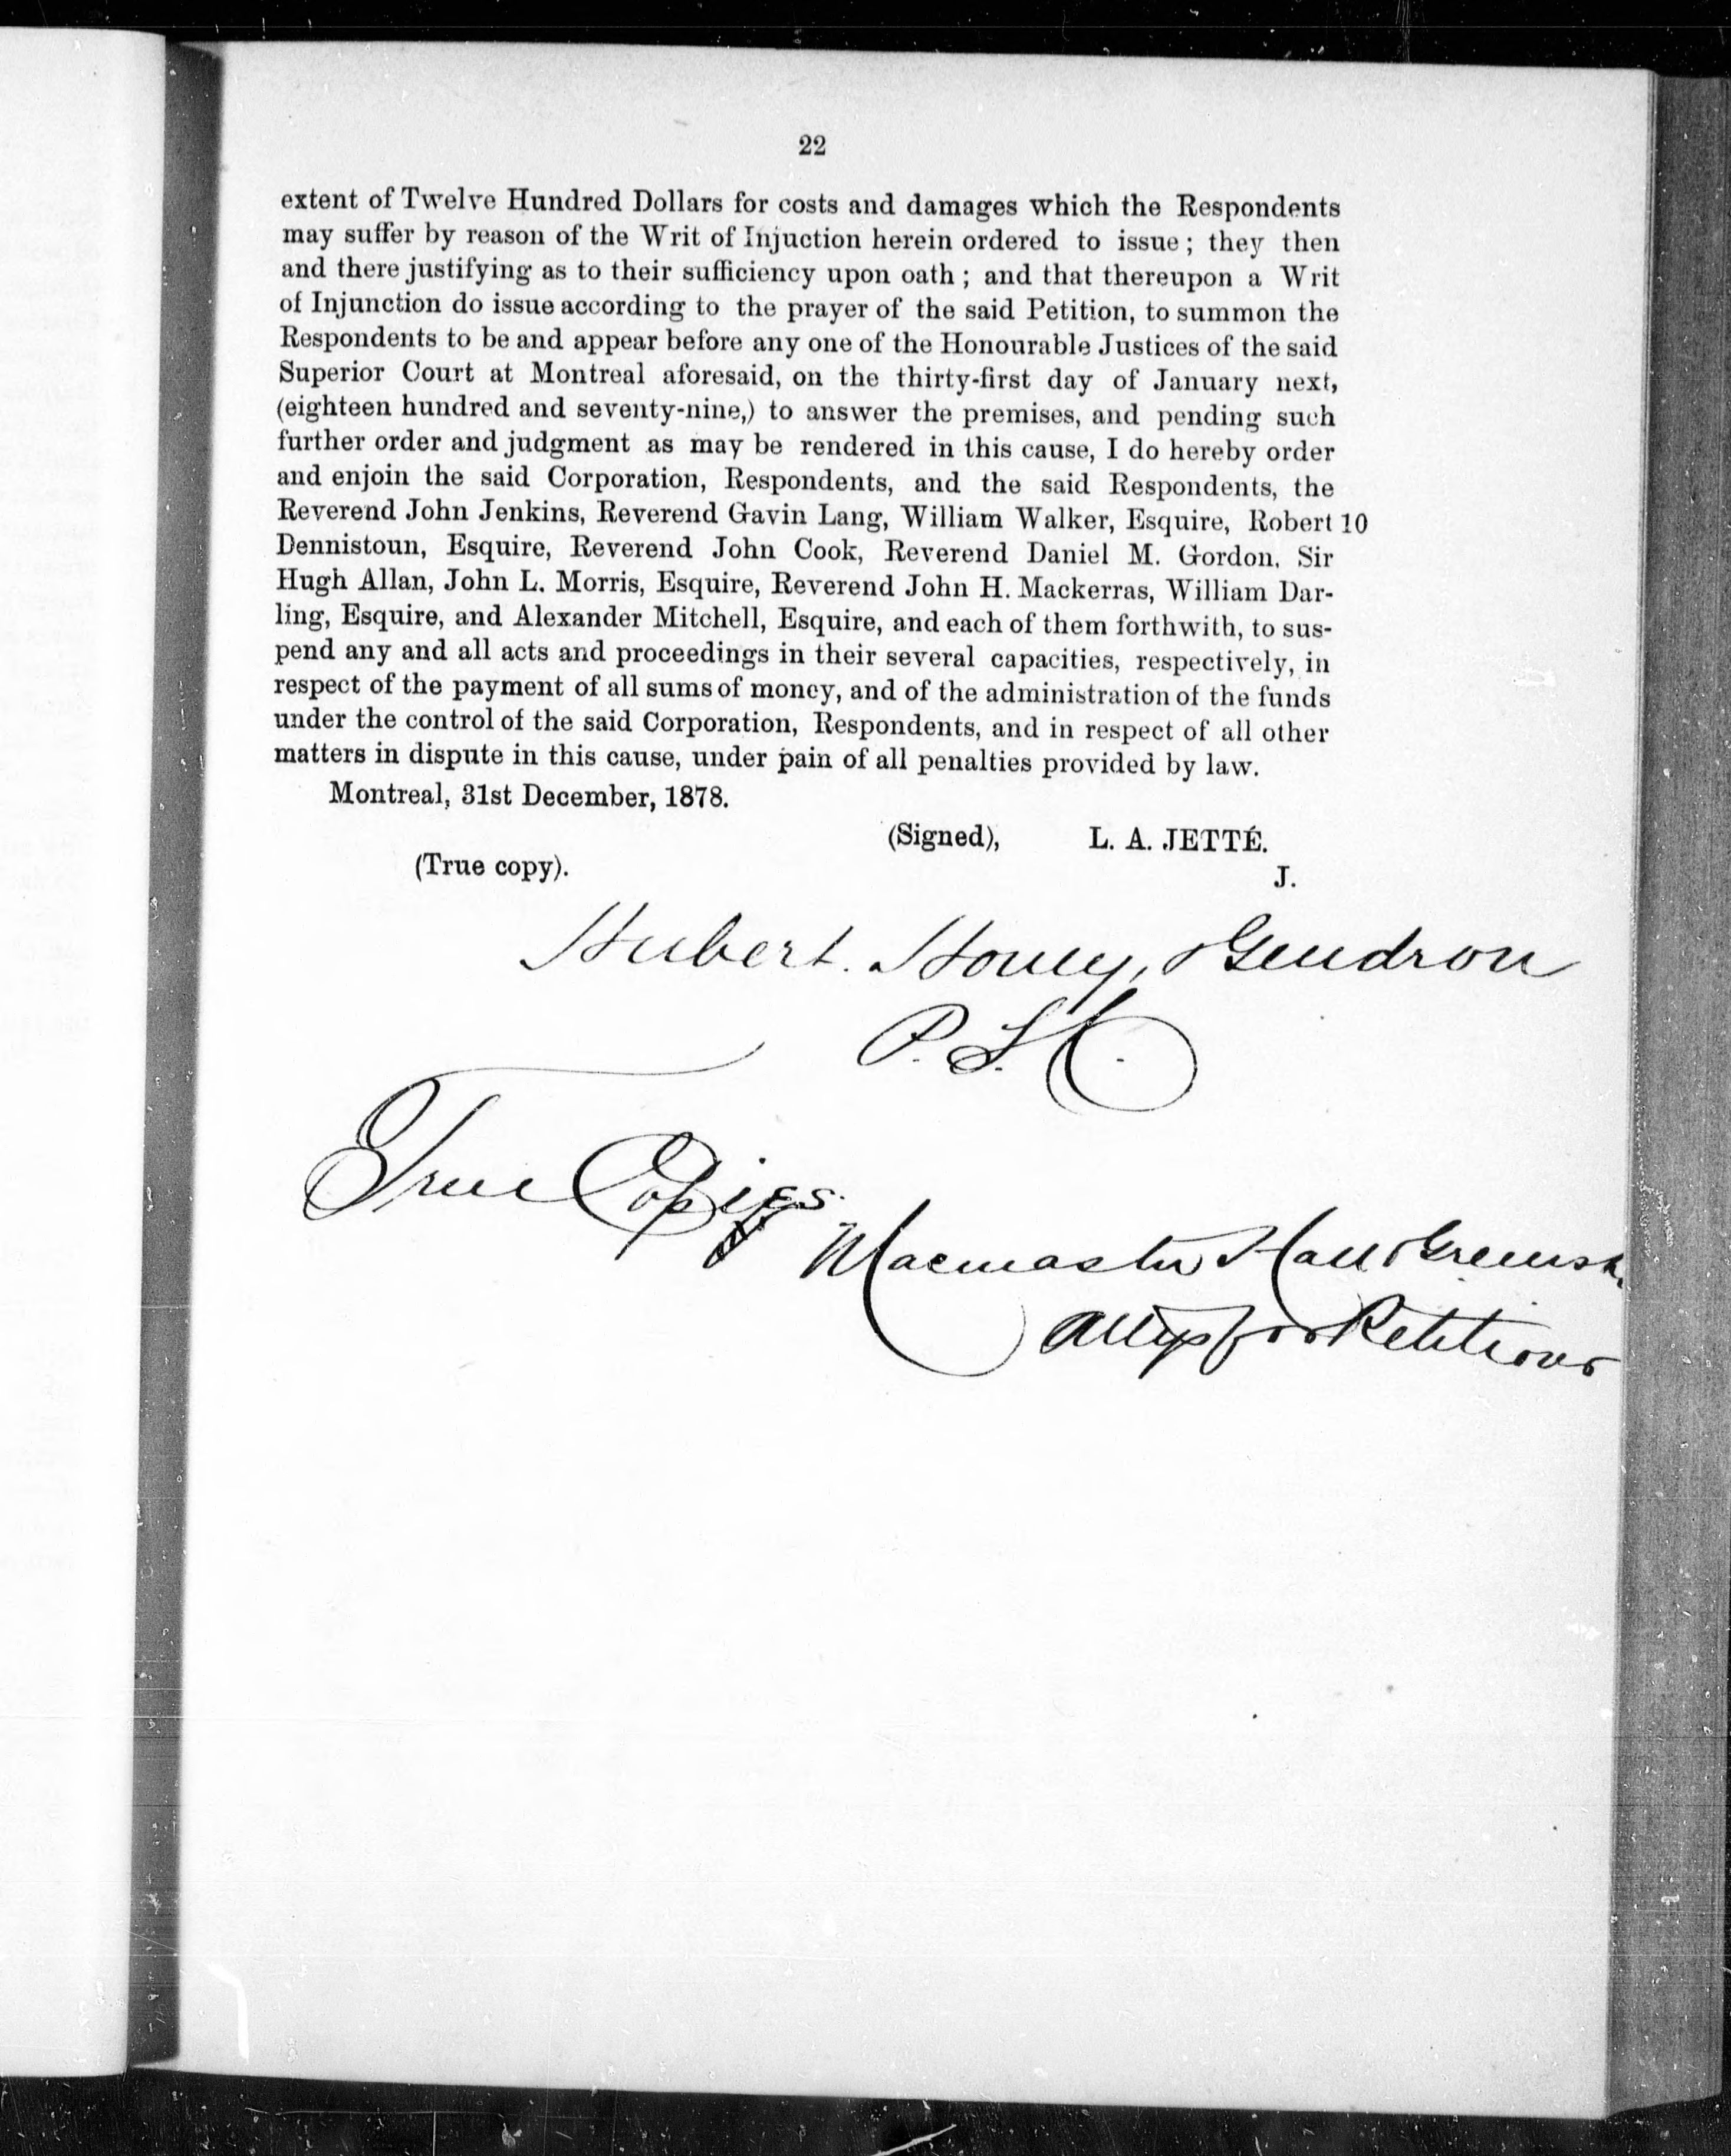 22
extent of Twelve Hundred Dollars for costs and damages which the Respondents
may suffer by reason of the Writ of Injuction herein ordered to issue; they then
and there justifying as to their sufficiency upon oath; and that thereupon a Writ
of Injunction do issue according to the prayer of the said Petition, to summon the
Respondents to be and appear before any one of the Honourable Justices of the said
Superior Court at Montreal aforesaid, on the thirty-first day of January next,
(eighteen hundred and seventy-nine,) to answer the premises, and pending such
further order and judgment as may be rendered in this cause, I do hereby order
and enjoin the said Corporation, Respondents, and the said Respondents, the
Reverend John Jenkins, Reverend Gavin Lang, William Walker, Esquire, Robert 10
Dennistoun, Esquire, Reverend John Cook, Reverend Daniel M. Gordon, Sir
Hugh Allan, John L. Morris, Esquire, Reverend John H. Mackerras, William Dar-
ling, Esquire, and Alexander Mitchell, Esquire, and each of them forthwith, to sus-
pend any and all acts and proceedings in their several capacities, respectively, in
respect of the payment of all sums of money, and of the administration of the funds
under the control of the said Corporation, Respondents, and in respect of all other
matters in dispute in this cause, under pain of all penalties provided by law.
Montreal, 31st December, 1878.
(Signed), L. A. JETTÉ.
(True copy). J.
Hubert. Honey, & Gendron
P.S.C.
True Copies
Macmaster Hall & Greensh
Attys for